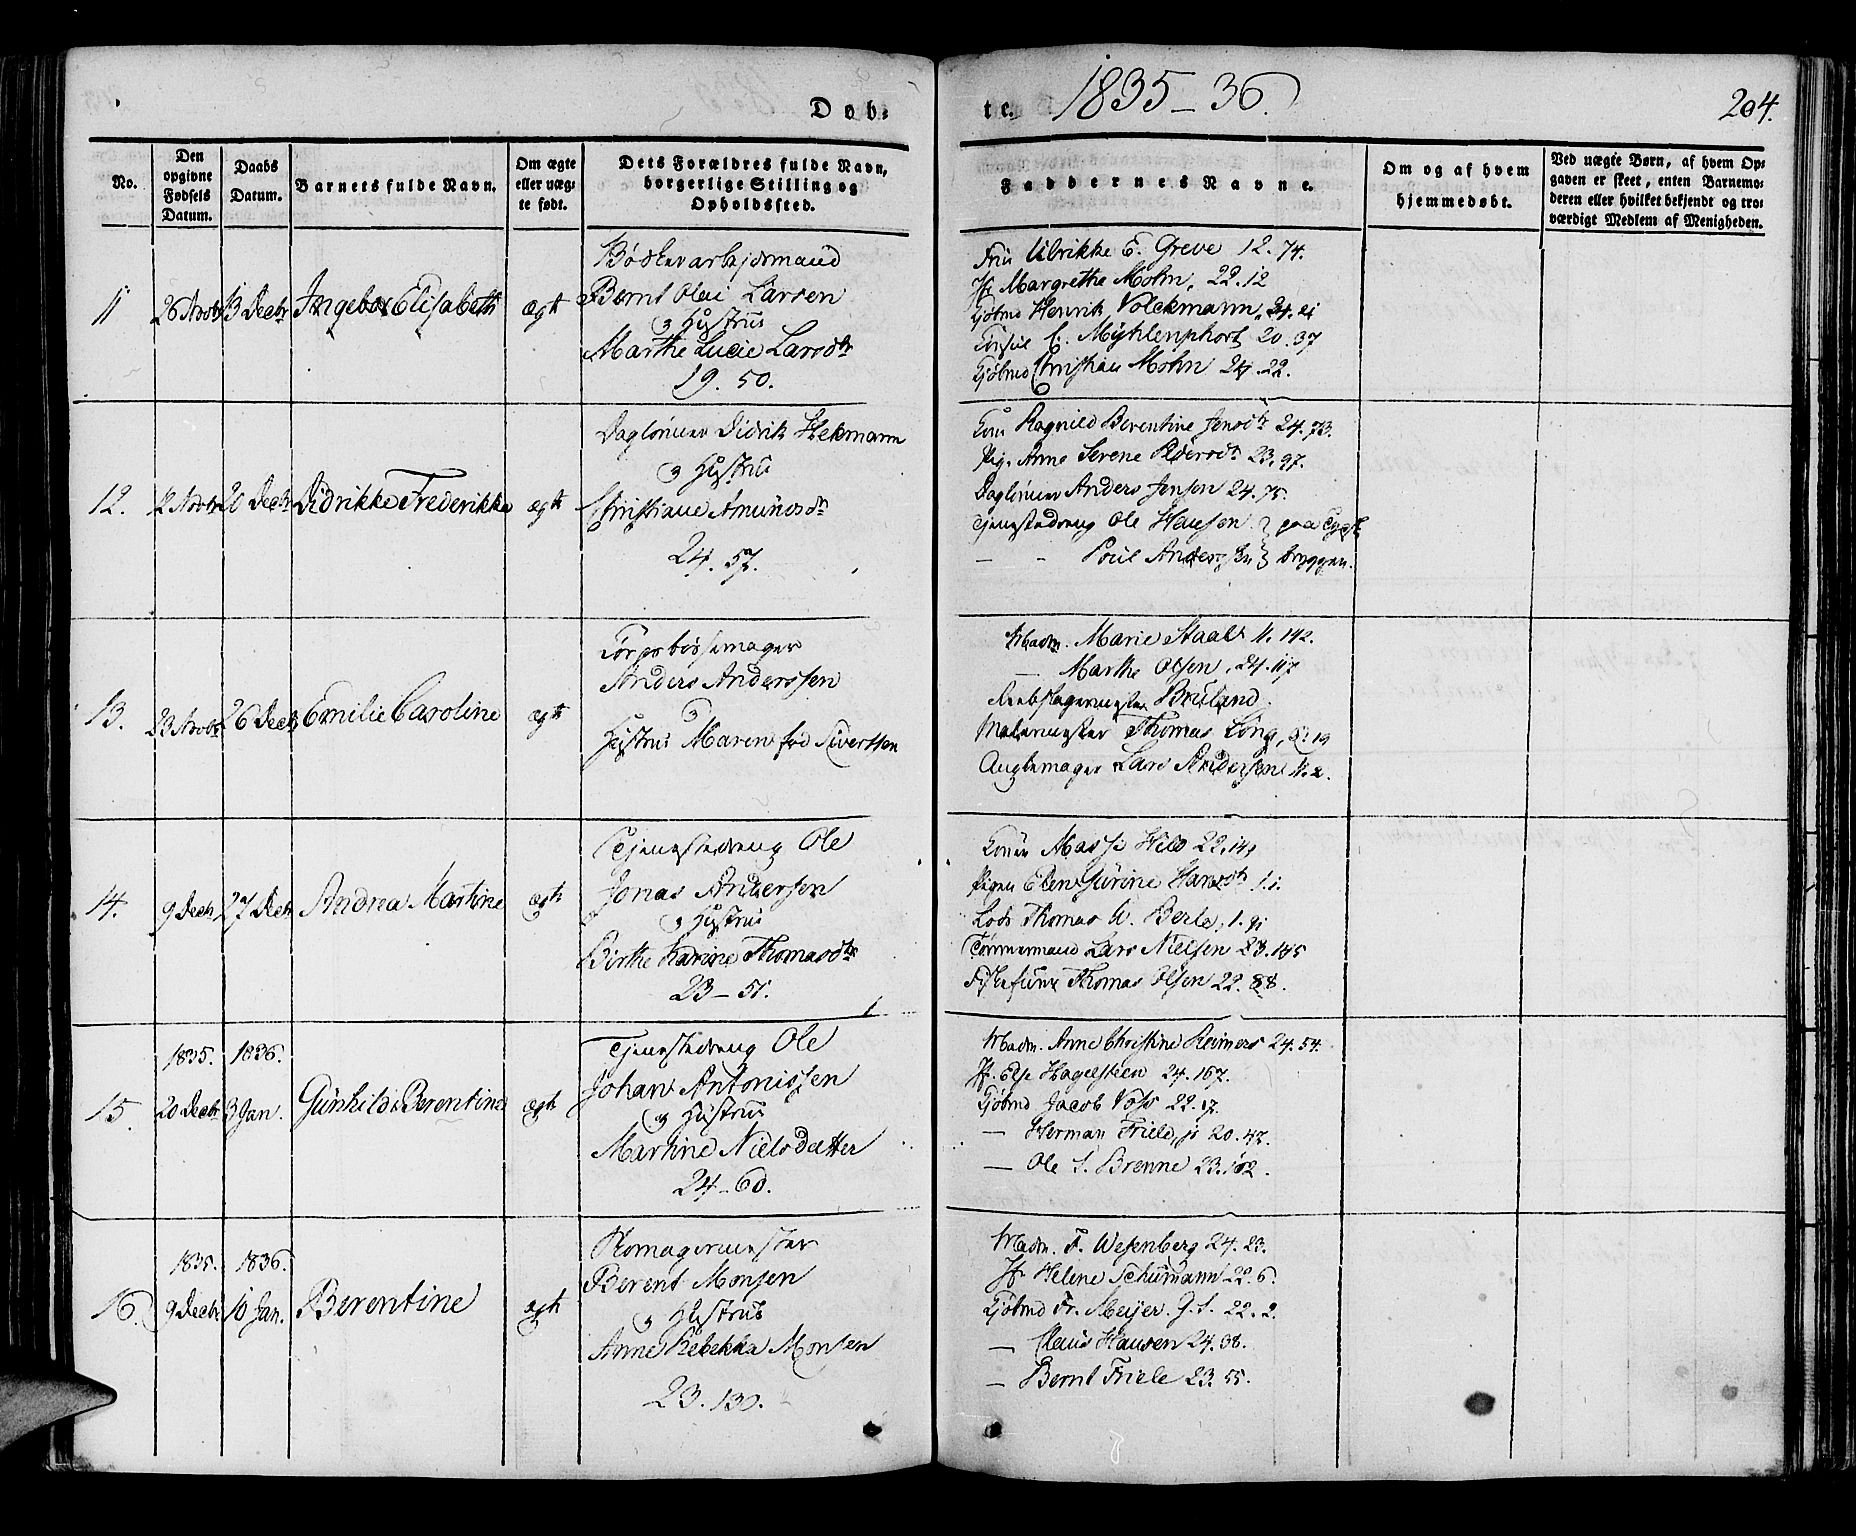 Døb-
te.
1835-36.
204.
No.
Den opgivne Fødsels Datum.
Daabs Datum.
Barnets fulde Navn.
Om ægte eller uægte født.
Dets Forældres fulde Navn, borgerlige Stilling og Opholdssted.
Faddernes Navne.
Om og af hvem hjemmedøbt.
Ved uægte Børn, af hvem Opgaven er skeet, enten Barnemoderen eller hvilket bekjendt og troværdigt Medlem af Menigheden.
11
26 Novbr
13 Decbr
Ingebor Elisabeth
ægte
Bernt Olai Larsen
Hustrue
Marthe Lucie Larsdtr
19. 50.
Frue Ulrikke E. Greve 12. 74.
Jfr Margrethe Mohn, 22. 12
Kjøbmd Henrik Volckmann, 24. 21
Consul C. Mÿhlenphort 20. 37
Kjøbmd Christian Mohn 24. 22.
12.
12 Novbr
20 Decbr
Didrikke Frederikke
ægte
Dagleiner Didrik Hekmann
Hustrue
Christiane Amundsdtr
24. 57.
Kone Ragnild Berentine Jensdtr 24. 73.
Pig. Anne Serene Pedersdtr 23. 97.
Dagleiner Anders Jensen 24. 75.
Tjenestedreng Ole Hansen } paa Tydske
- - Poul Andersen } bryggen.
13.
23 Novbr
26 Decbr
Emilie Caroline
ægte
Corpsbøssemager
Anders Anderssen
Hustrue Maren fød Sivertsen
Madm. Marie Staal 11. 142.
— Marthe Olsen, 24. 117
Reebslagermester Bruland.
Malermester Thomas Long, 8. 19
Lars Andersen 11. 2.
14.
9 Decbr
27 Decbr
Andrea Martine
ægte
Tjenestedreng Ole
Jonas Andersen
Hustrue
Birthe Karine Thomasdtr
23 - 51.
Konen Massi Hild 22. 141
Pigen Elen Sürine Hansdtr 1. 1.
Lods Thomas W. Berle, 1. 91
Tømmermand Lars Nielsen 23. 145
Thomas Olsen 22. 88.
15.
1835.
20 Decbr
1836.
3 Jan.
Günhild Berentine
ægte
Tjenestedreng Ole
Johan Antonissen
Hustrue
Martine Nielsdatter
24 - 60.
Madm. Anne Christine Reimers 24. 54.
Jfr. Else Hagelstien 24. 167.
Kjøbmd Jacob Voss 22. 17.
— Herman Friele, jr 20. 47.
— Ole S. Brenne 23. 102.
16.
1835.
9 Decbr
1836.
10 Jan.
Berentine
ægte
Skomagermester
Berent Monsen
Hustrue
Anne Rebekka Monsen
23. 130.
Madm. F. Wesenberg 24. 23.
Jfr Heline Schumann 22. 6.
Kjøbmd Fr. Meijer. G. S. 22. 2.
— Claus Hansen 24. 38.
— Bernt Friele 23. 55.